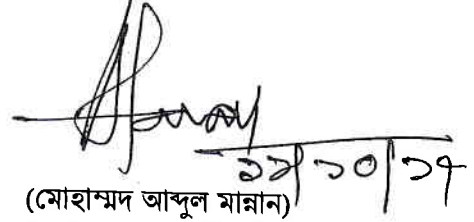 ১২/১০/১৭
(মোহাম্মদ আব্দুল মান্নান)